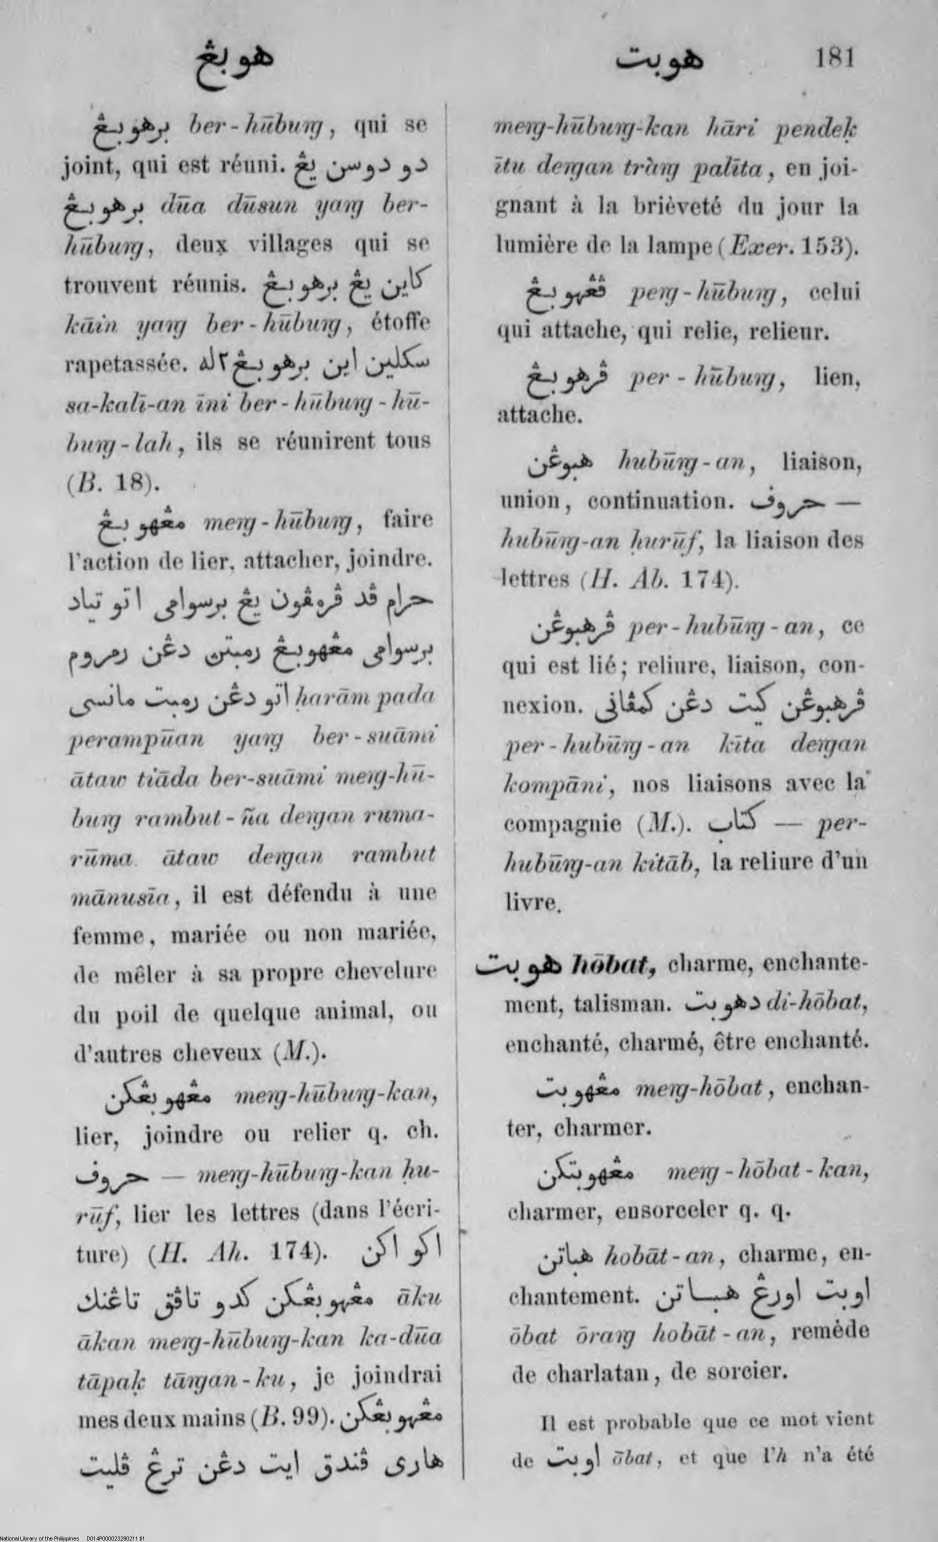 هوبڠ
هوبت 181
برهوبڠ ber-hūbuṅg, qui se
joint, qui est réuni. دو دوسن يڠ
برهوبڠ dūa dūsun yaṅg ber-
hūbuṅg, deux villages qui se
trouvent réunis. كاين يڠ برهوبڠ
kāin yaṅg ber-hūbuṅg, étoffe
rapetassée. سكلين اين برهوبڠ٢له
sa-kalī-an īni ber-hūbuṅg-hū-
buṅg-lah, ils se réunirent tous
(B. 18).
مڠهوبڠ meṅg-hūbuṅg, faire
l'action de lier, attacher, joindre.
حرام ڤد ڤرمڤون يڠ برسوامى اتو تياد
برسوامى مڠهوبڠ رمبتن دڠن رمروم
اتو دڠن رمبت مانسى ḥarām pada
perampūan yaṅg ber-suāmi
ātaw tiāda ber-suāmi meṅg-hū-
buṅg rambut-ña deṅgan ruma-
rūma ātaw deṅgan rambut
mānusīa, il est défendu à une
femme, mariée ou non mariée,
de mêler à sa propre chevelure
du poil de quelque animal, ou
d'autres cheveux (M.).
مڠهوبڠكن meṅg-hūbuṅg-kan,
lier, joindre ou relier q. ch.
حروف — meṅg-hūbuṅg-kan ḥu-
rūf, lier les lettres (dans l'écri-
ture) (H. Ab. 174). اكو اكن
مڠهوبڠكن كدو تاڤق تاڠنك āku
ākan meṅg-hūbuṅg-kan ka-dūa
tāpaḳ tāṅgan-ku, je joindrai
mes deux mains (B. 99). مڠهوبڠكن
هارى ڤندق ايت دڠن ترڠ ڤليت
meṅg-hūbuṅg-kan hāri pendeḳ
ītu deṅgan trāṅg palīta, en joi-
gnant à la brièveté du jour la
lumière de la lampe (Exer. 153).
ڤڠهوبڠ peṅg-hūbuṅg, celui
qui attache, qui relie, relieur.
ڤرهوبڠ per-hūbuṅg, lien,
attache.
هبوڠن hubūṅg-an, liaison,
union, continuation. حروف —
hubūṅg-an ḥurūf, la liaison des
lettres (H. Ab. 174).
ڤرهبوڠن per-hubūṅg-an, ce
qui est lié; reliure, liaison, con-
nexion. ڤرهبوڠن كيت دڠن كمڤانى
per-hubūṅg-an kīta deṅgan
kompāni, nos liaisons avec la
compagnie (M.). كتاب — per-
hubūṅg-an kitāb, la reliure d'un
livre.
هوبت hōbat, charme, enchante-
ment, talisman. دهوبت di-hōbat,
enchanté, charmé, être enchanté.
مڠهوبت meṅg-hōbat, enchan-
ter, charmer.
مڠهوبتكن meṅg-hōbat-kan,
charmer, ensorceler q. q.
هباتن hobāt-an, charme, en-
chantement. اوبت اورڠ هباتن
ōbat ōraṅg hobāt-an, remède
de charlatan, de sorcier.
Il est probable que ce mot vient
de اوبت ōbat, et que l'h n'a été
National Library of the Philippines